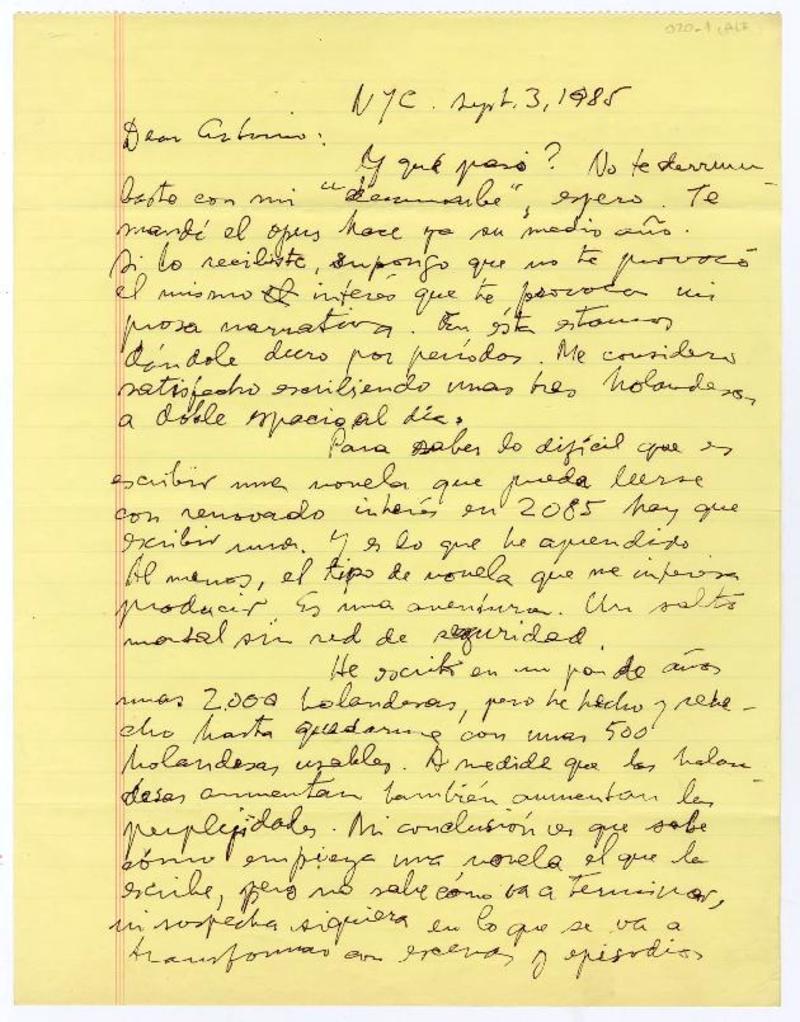 NYC. Sept. 3, 1985
Dear Antonio:
Y qué pasó? No te derrum-
baste con mi "derrumbe", espero. Te
mandé el opus hace ya su medio año.
Si lo recibiste, supongo que no te provocó
el mismo interés que te provoca mi
prosa narrativa. En ésta estamos
dándole duro por períodos. Me considero
satisfecho escribiendo unas tres holandesas
a doble espacio al día.
Para saber lo difícil que es
escribir una novela que pueda leerse
con renovado interés en 2085 hay que
escribir una. Y es lo que he aprendido
Al menos, el tipo de novela que me interesa
producir. Es una aventura. Un salto
mortal sin red de seguridad.
He escrito en un par de años
unas 2.000 holandesas, pero he hecho y rehe-
cho hasta quedarme con unas 500
holandesas usables. A medida que las holan-
desas aumentan también aumentan las
perplejidades. Mi conclusión es que sabe
cómo empieza una novela el que la
escribe, pero no sabe cómo va a terminar,
ni sospecha siquiera en lo que se va a
transformar con escenas y episodios